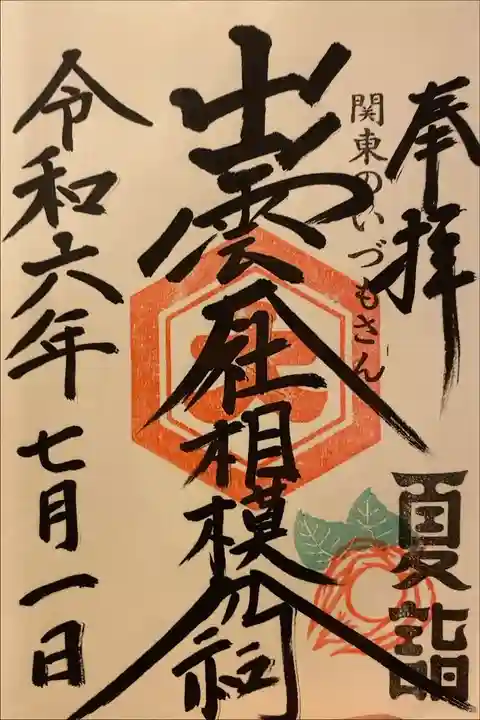 奉拝
夏詣
関東のいづもさん
出雲大社相模分祠
大
令和六年七月一日